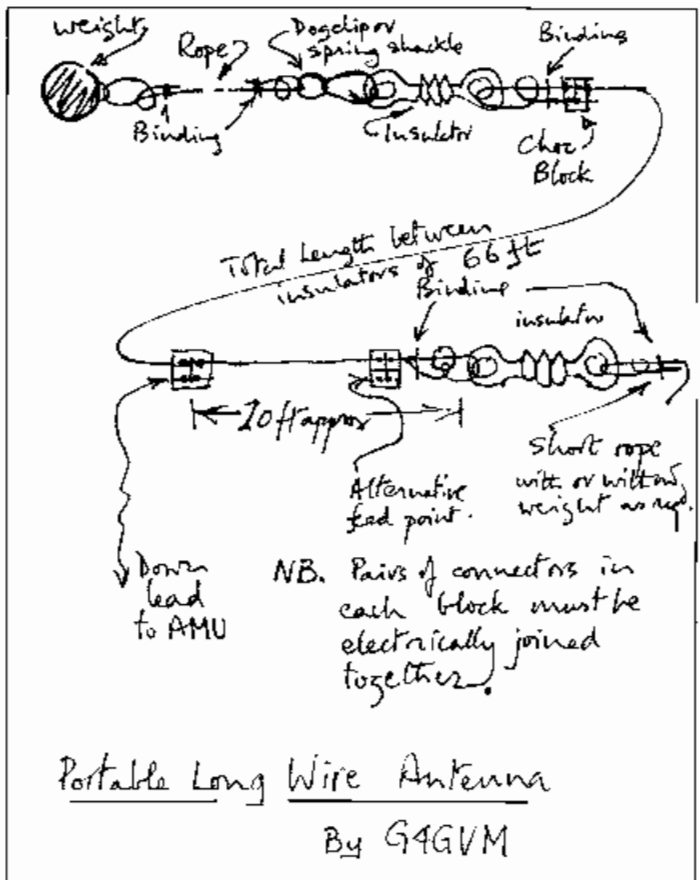 weight
Rope
Dogclip or
spring shackle
Binding
Binding
Insulator
Choc
Block
Total Length between
insulators of 66 ft
Binding
insulator
20 ft approx
Alternative
feed point.
Short rope
with or without
weight as req.
Down
lead
to AMU
NB. Pairs of connectors in
each block must be
electrically joined
together.
Portable Long Wire Antenna
By G4GVM